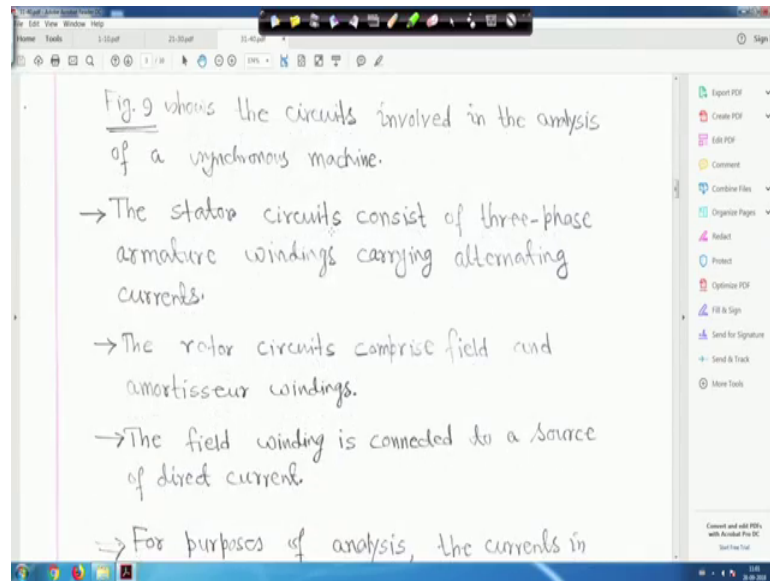 31-40.pdf - Adobe Acrobat Reader DC
File Edit View Window Help
Home Tools 1-10.pdf 21-30.pdf 31-40.pdf × Sign
Fig. 9 shows the circuits involved in the analysis
of a synchronous machine.
→ The stator circuits consist of three-phase
armature windings carrying alternating
currents.
→ The rotor circuits comprise field and
amortisseur windings.
→ The field winding is connected to a source
of direct current.
→ For purposes of analysis, the currents in
Export PDF
Create PDF
Edit PDF
Comment
Combine Files
Organize Pages
Redact
Protect
Optimize PDF
Fill & Sign
Send for Signature
Send & Track
More Tools
Convert and edit PDFs
with Acrobat Pro DC
Start Free Trial